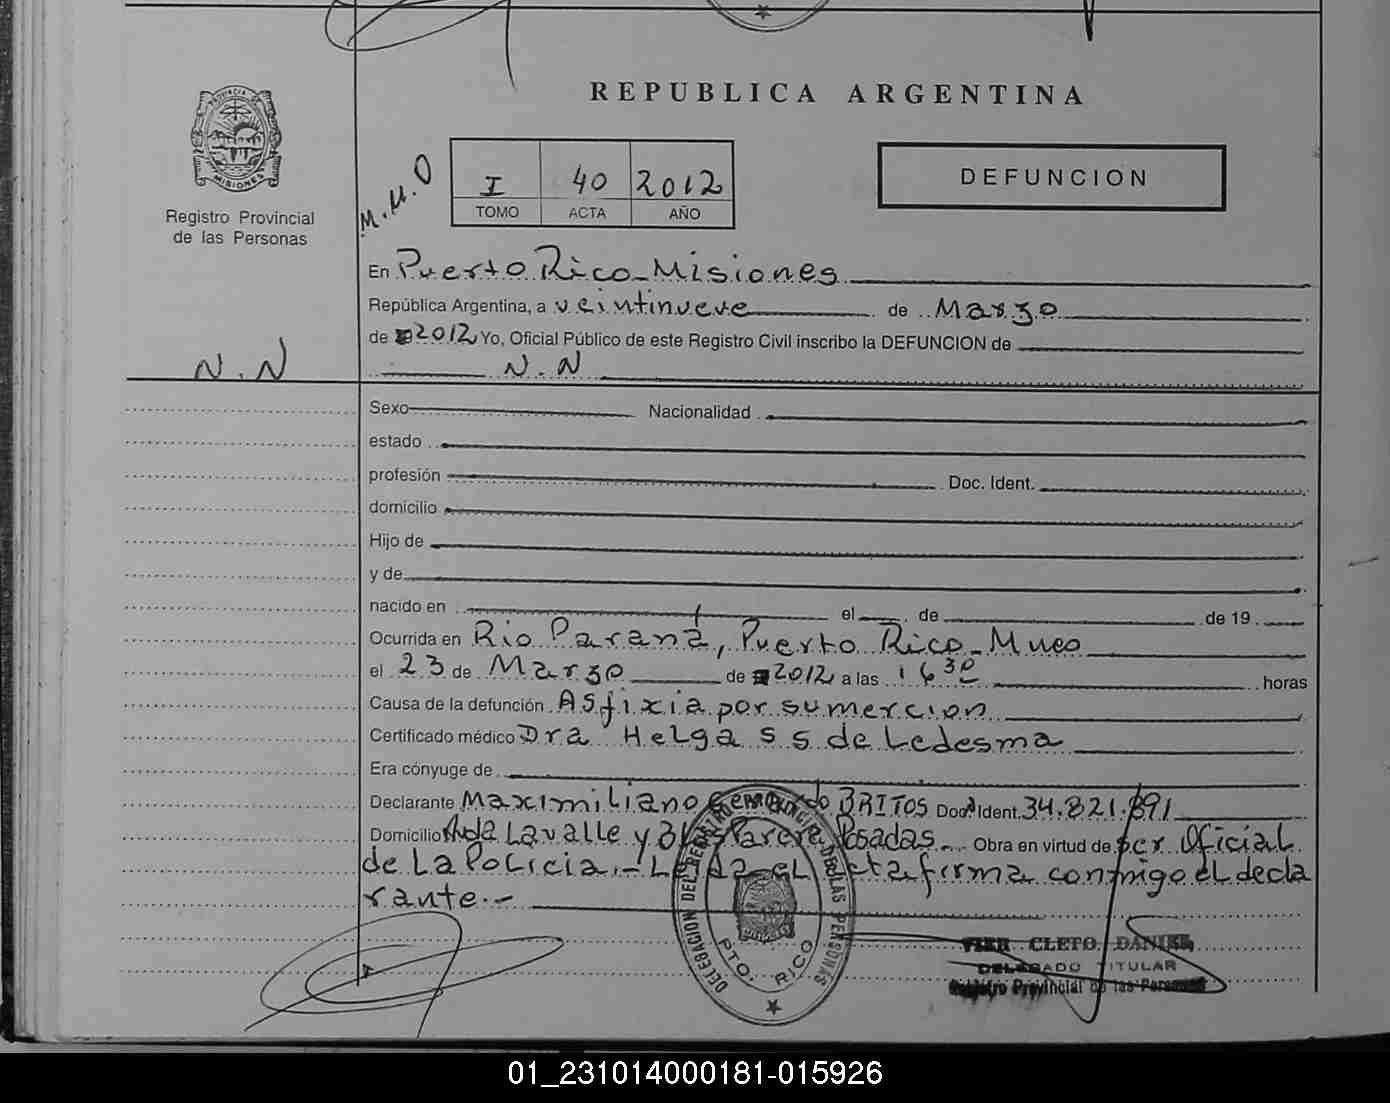 REPUBLICA ARGENTINA
PROVINCIA DE
MISIONES
Registro Provincial
de las Personas
M.M.O
I 40 2012
TOMO ACTA AÑO
DEFUNCION
En Puerto Rico-Misiones
República Argentina, a veintinueve de Marzo
de 2012 Yo, Oficial Público de este Registro Civil inscribo la DEFUNCION de
N.N
N.N
Sexo Nacionalidad
estado
profesión Doc. Ident.
domicilio
Hijo de
y de
nacido en el de de 19
Ocurrida en Rio Paraná, Puerto Rico-Mnes
el 23 de Marzo de 2012 a las 16 30 horas
Causa de la defunción Asfixia por sumercion
Certificado médico Dra Helga S S de Ledesma
Era cónyuge de
Declarante Maximiliano Gerardo BRITOS Doc. Ident. 34.821.891
Domicilio Avda Lavalle y Posadas Obra en virtud de ser Oficial
de La Policia.- Leida el Acta firma conmigo el decla
rante.-
DELEGACION DEL REGISTRO PROVINCIAL DE LAS PERSONAS
PTO. RICO
CLETO DANIEL
DELEGADO TITULAR
Registro Provincial de las Personas
01_231014000181-015926